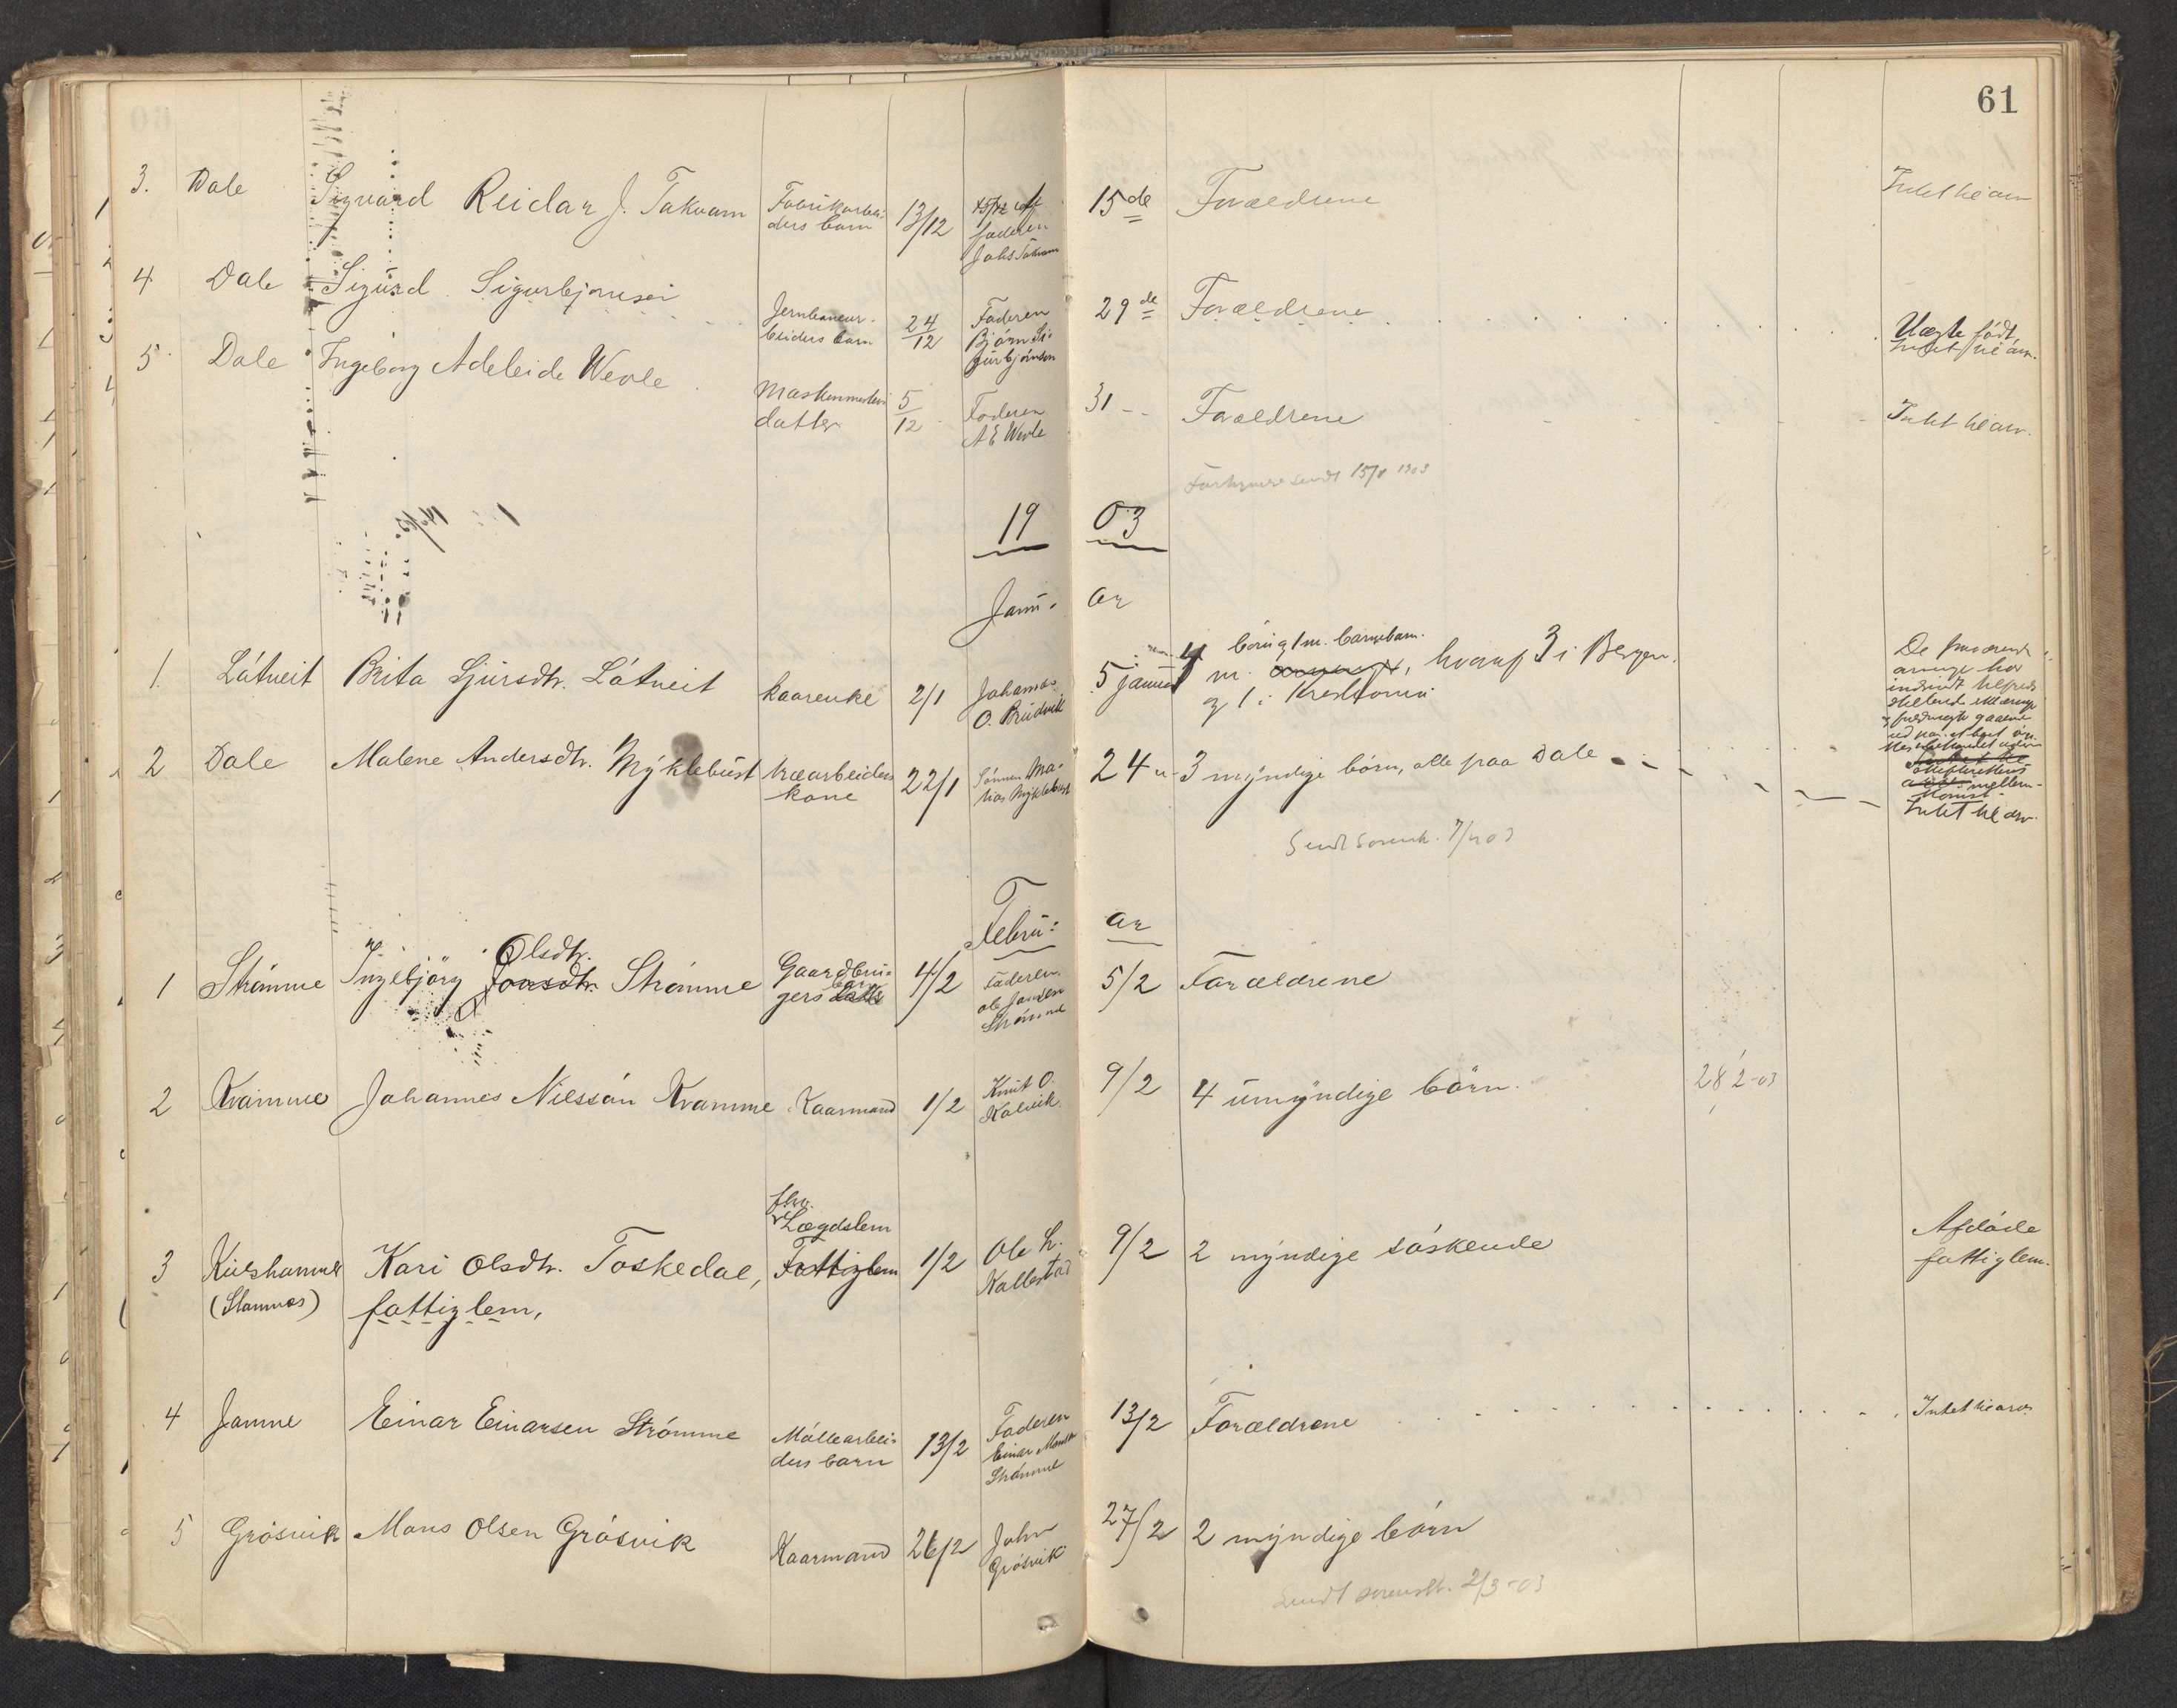 61
3. Dale Sigvard Reidar J. Takvam Fabrikarbei-
ders barn 13/12 15/12 af
faderen
Johs Takvam 15de Forældrene Intet til arv
4 Dale Sigurd Sigurbjørnsen Jernbanear-
beiders barn 24/12 Faderen
Bjørn Si-
gurbjørnsen 29de Forældrene Uægte født,
Intet til arv.
5 Dale Ingeborg Adeleide Wevle Maskinmesters
datter 5/12 Faderen
A E Wevle 31 -- Forældrene Intet til arv.
sendt 15/1 1903
19 03
Janu- ar
1 Låtveit Brita Sjursdtr. Låtveit kaarenke 2/1 Johannes
O. Brudvik 5 januar 4 börn og 1 m. barnebarn.
m. , hvoraf 3 i Bergen.
og 1 i Kristiania
De fraværende
arvinge har
indsendt tilfreds
stillende erklæring
mellem-
komst.
2 Dale Malene Andersdtr. Myklebust træarbeiders
kone 22/1 Sønnen Ma-
tias Myklebust 24 " 3 myndige börn, alle paa Dale Intet til arv.
Sendt sorensk. 7/2 03
Febru- ar
1 Strømme Ingebjörg Jonsdtr. Olsdtr. Strømme Gaardbru-
gers datter barn 4/2 Faderen
Ole Jonsen
Strømme 5/2 Forældrene
2 Kvamme Johannes Nilssån Kvamme Kaarmand 1/2 Knut O.
Kalvik. 9/2 4 umyndige börn. 28/2-03
fhv.
Lægdslem
3 (Stamnes) Kari Olsdtr. Toskedal, Fattiglem 1/2 Ole L.
Kallestad 9/2 2 myndige søskende Afdøde
fattiglem.
fattiglem,
4 Jamne Einar Einarsen Strømme Møllearbei-
ders barn 13/2 Faderen
Einar Monsen
Strømme 13/2 Forældrene Intet til arv
5 Gråsvik Mons Olsen Gråsvik Kaarmand 26/2 John
Gråsvik 27/2 2 myndige börn
Sendt sorenskr. 2/3-03